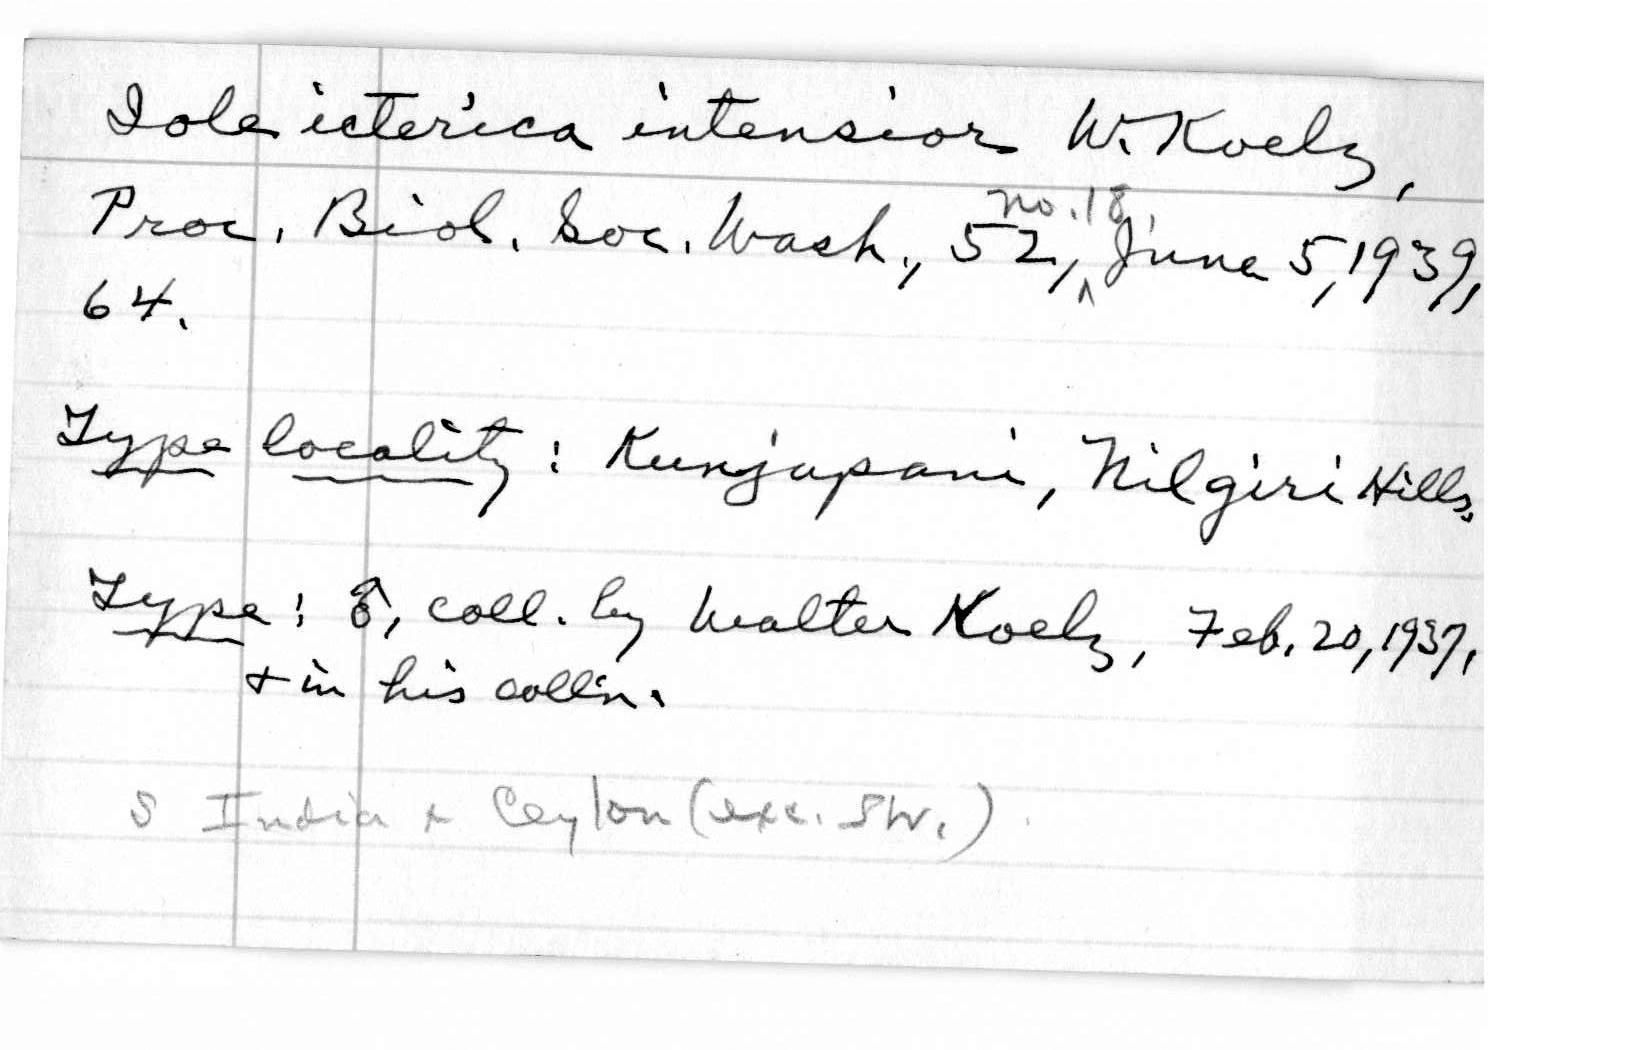 Iole icterica intensior W. Koelz,
Proc. Biol. Soc. Wash., 52, ^ no. 18, June 5, 1939,
64.
Type locality: Kunjapani, Nilgiri Hills.
Type: ♂, coll. by Walter Koelz, Feb. 20, 1937,
+ in his coll'n.
S India + Ceylon (exc. SW.)